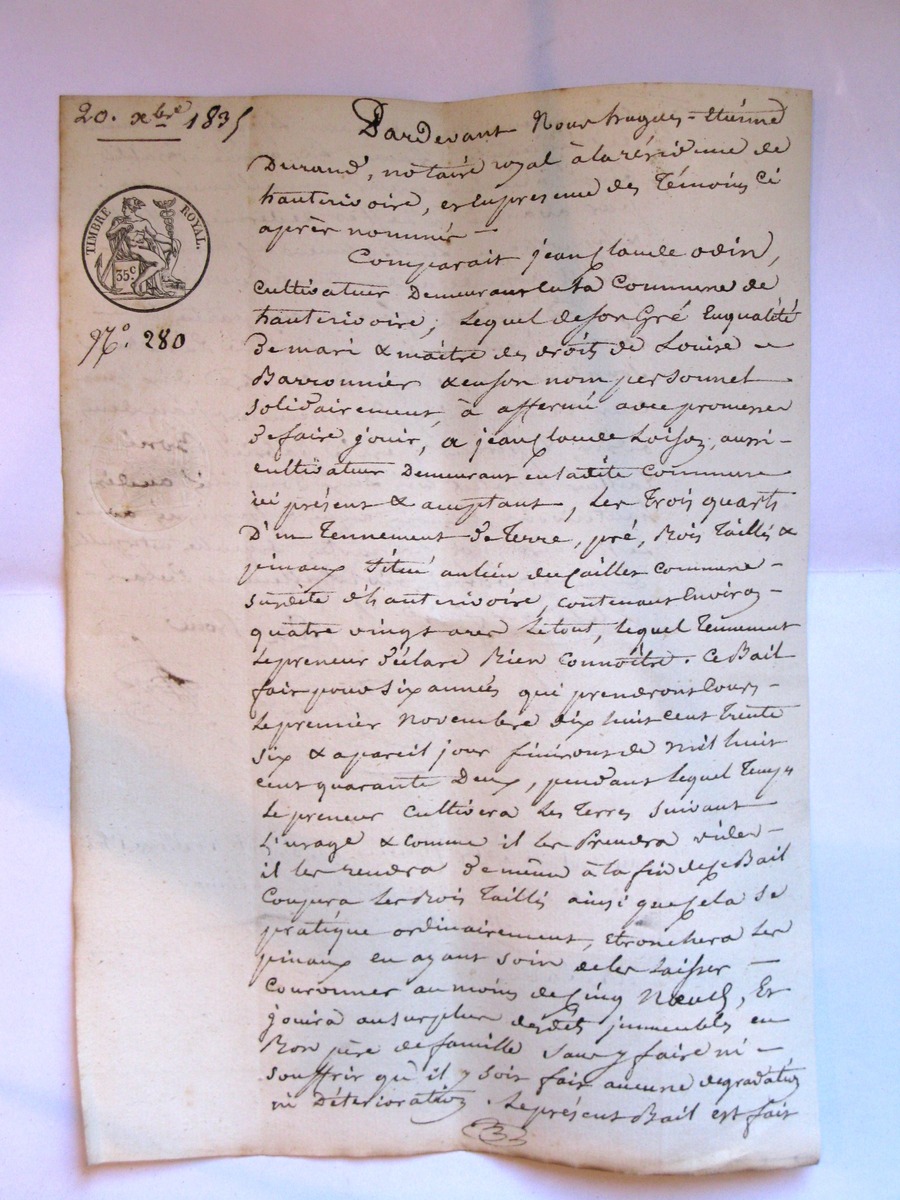 20. xbre 1835
TIMBRE ROYAL.
35c
No. 280
Pardevant Nous hugues=Etienne
Durand, notaire royal à la résidence de
hauterivoire, et en presence des Témoins ci
après nommés —
Comparait jean Claude odin,
Cultivateur Demeurant en la Commune de
hauterivoire, lequel de son Gré En qualité
de mari & maitre des droits de Louise —
Barronnier & en son nom personnel
solidairement, à affermé avec promesse
de faire jouir, a jean Claude Loison, aussi —
cultivateur Demeurant en ladite commune
ici présent & acceptant, les Trois quarts
D'un Tennement de Terre, pré, Bois Taillis &
pinaux Situé au lieu du Caillet Commune —
susdite d'hauterivoire, contenant Environ —
quatre vingts ares Le tout, lequel Tennement
Le preneur déclare Bien Connoître. Ce Bail
fait pour Six années qui prendront Cours —
Le premier Novembre dix huit cent trente
six & a pareil jour finiront de mil huit
cent quarante Deux, pendant lequel Temps
Le preneur Cultivera les Terres suivant
L'usage & comme il les Prendra vides —
il les rendra de même à la fin de ce Bail
Coupera les Bois Taillis ainsi que cela se
pratique ordinairement, Etronchera les
pinaux en ayant soin de les laisser —
Couronner au moins de Cinq Nœuds, Et
jouira au surplus desdits immeubles en
Bon père de famille sans y faire ni —
souffrir qu'il y soit fait aucune degradation
ni Déterioration. Le présent Bail est fait